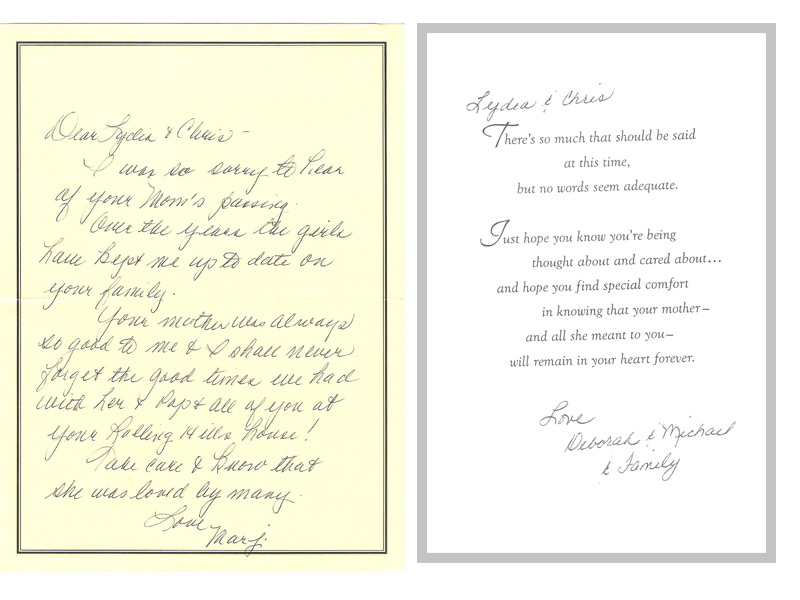 Dear Lydia & Chris -
I was so sorry to hear
of your Mom's passing.
Over the years the girls
have kept me up to date on
your family.
Your mother was always
so good to me & I shall never
forget the good times we had
with her & Pop & all of you at
your Rolling Hills house!
Take care & know that
she was loved by many.
Love
Marj.
Lydia & Chris
There's so much that should be said
at this time,
but no words seem adequate.
Just hope you know you're being
thought about and cared about...
and hope you find special comfort
in knowing that your mother–
and all she meant to you–
will remain in your heart forever.
Love
Deborah & Michael
& Family